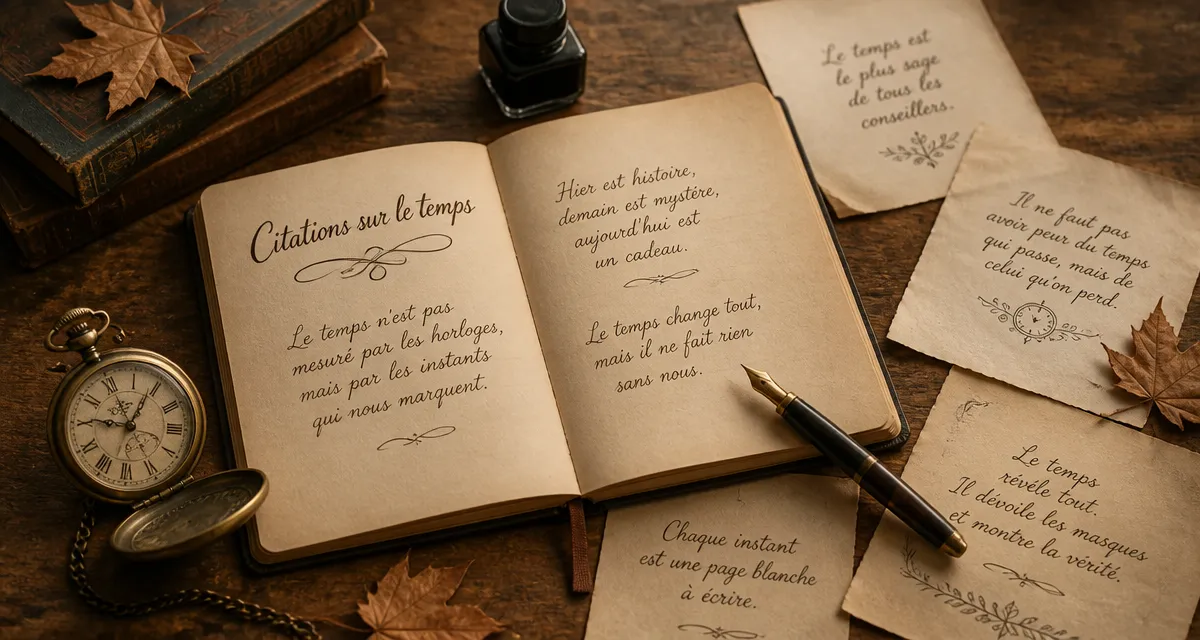 Citations sur le temps
Le temps n'est pas
mesuré par les horloges,
mais par les instants
qui nous marquent.
Hier est histoire,
demain est mystére,
aujourd'hui est
un cadeau.
Le temps change tout,
mais il ne fait rien
sans nous.
Le temps est
le plus sage
de tous les
conseillers.
Il ne faut pas
avoir peur du temps
qui passe, mais de
celui qu'on perd.
Le temps
révéle tout.
Il dévoile les masques
et montre la vérité.
Chaque instant
est une page blanche
à écrire.